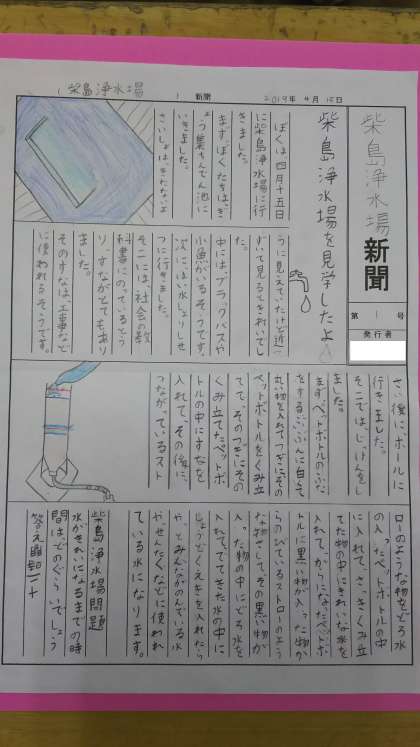 柴島浄水場
新聞
2019年4月15日
柴島浄水場
新聞
第1号
発行者
柴島浄水場を見学したよ
ぼくは四月十五日
に柴島浄水場に行
きました。
まずぼくたちは、き
ょう集ちんでん池に
いきました。
さいしょは、きたないよ
うに見えていたけど近づ
いて見るときれいでし
た。
中には、ブラックバスや
小魚がいるそうです。
次に、はい水しょりしせ
つに行きました。
そこには、社会の教
科書にのっているとう
り、すながとてもあり
ました。
そのすなは、工事など
に使われるそうです。
さい後にホールに
行きました。
そこでは、じっけんをし
ました。
まずペットボトルのふた
をするぶぶんに白くて
丸い物を入れてつぎにその
ペットボトルをくみ立
てて、そのつぎにその
くみ立てたペットボ
トルの中にすなを
入れて、その後に、
つながっているスト
ローのような物をどろ水
の入ったペットボトルの中
に入れて、さっきくみ立
てた物の中にきれいな水を
入れて、からになったペットボ
トルに黒い物が入った物か
らのびているストローのよう
な物をさしてその黒い物が
入った物の中にどろ水を
入れて、でてきた水の中に
しょうどくえきを入れたら
や、とみんながのんでいる水
や、せんたくなどに使われ
ている水になります。
柴島浄水場問題
水がきれいになるまでの時
間はどのぐらいでしょう
答え